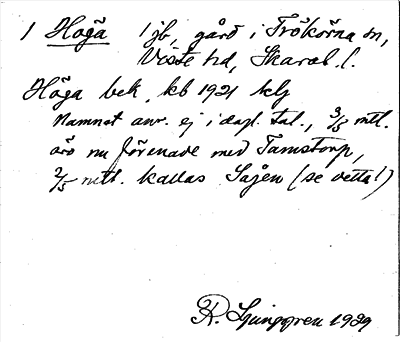 1 Höga 1 jb, gård i Trökörna sn,
Viste hd, Skarab. l.
Höga bek. kb 1921 hlj
Namnet anv. ej i dagl. tal., 3/5 mtl.
äro nu förenade med Tamstorp,
2/5 mtl. kallas Sågen (se detta!)
R. Ljunggren 1929